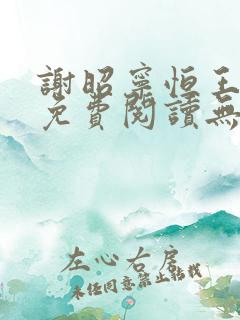 謝昭寧恒王
免費閱讀無
左心右房
未經同意禁止轉載